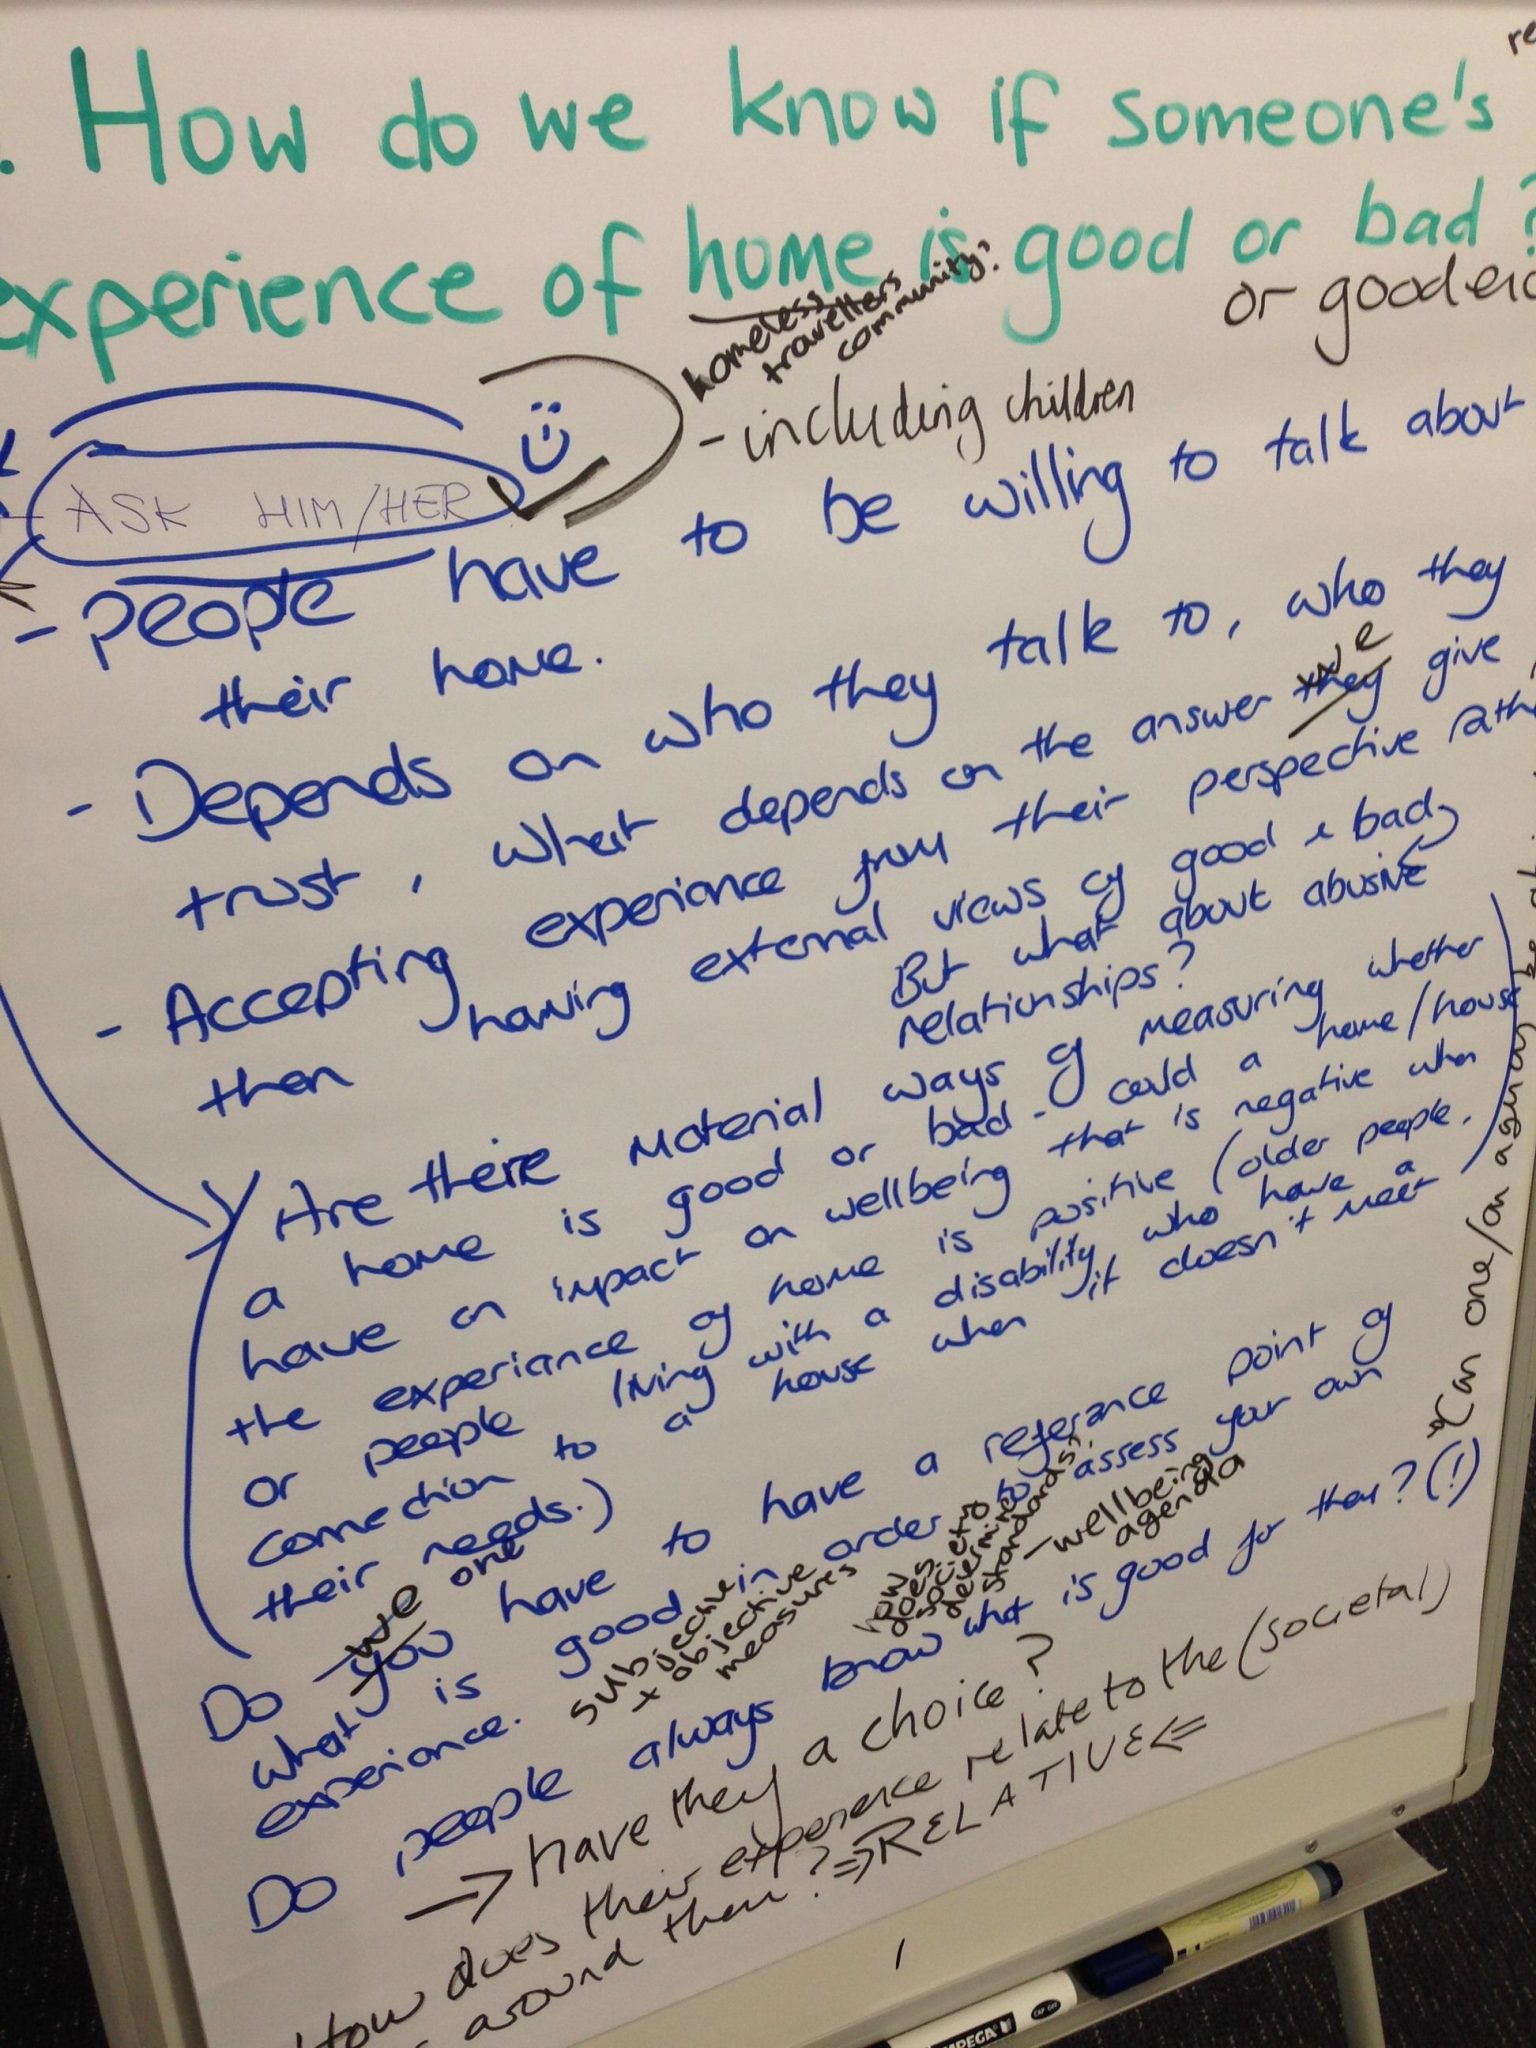 . How do we know if someone's
experience of home is good or bad?
or good
homeless
travellers
community?
ASK HIM/HER
- including children
- People have to be willing to talk about
their home.
- Depends on who they talk to, who they
trust, what depends on the answer they we give
- Accepting experience from their perspective
then having external views of good & bad
But what about abusive
relationships?
Are there material ways of measuring whether
a home is good or bad - could a home/house
have an impact on wellbeing that is negative when
the experience of home is positive (older people,
or people living with a disability, who have a
connection to a house when it doesn't meet
their needs.)
Do you we one have to have a reference point of
what is good in order to assess your own
experience.
subjective
+ objective
measures
how
does
society
determine
standards?
- wellbeing
agenda
Do people always know what is good for them? (!)
→ have they a choice?
How does their experience relate to the (societal)
around them? ⇒ RELATIVE ⇐
one/an agency